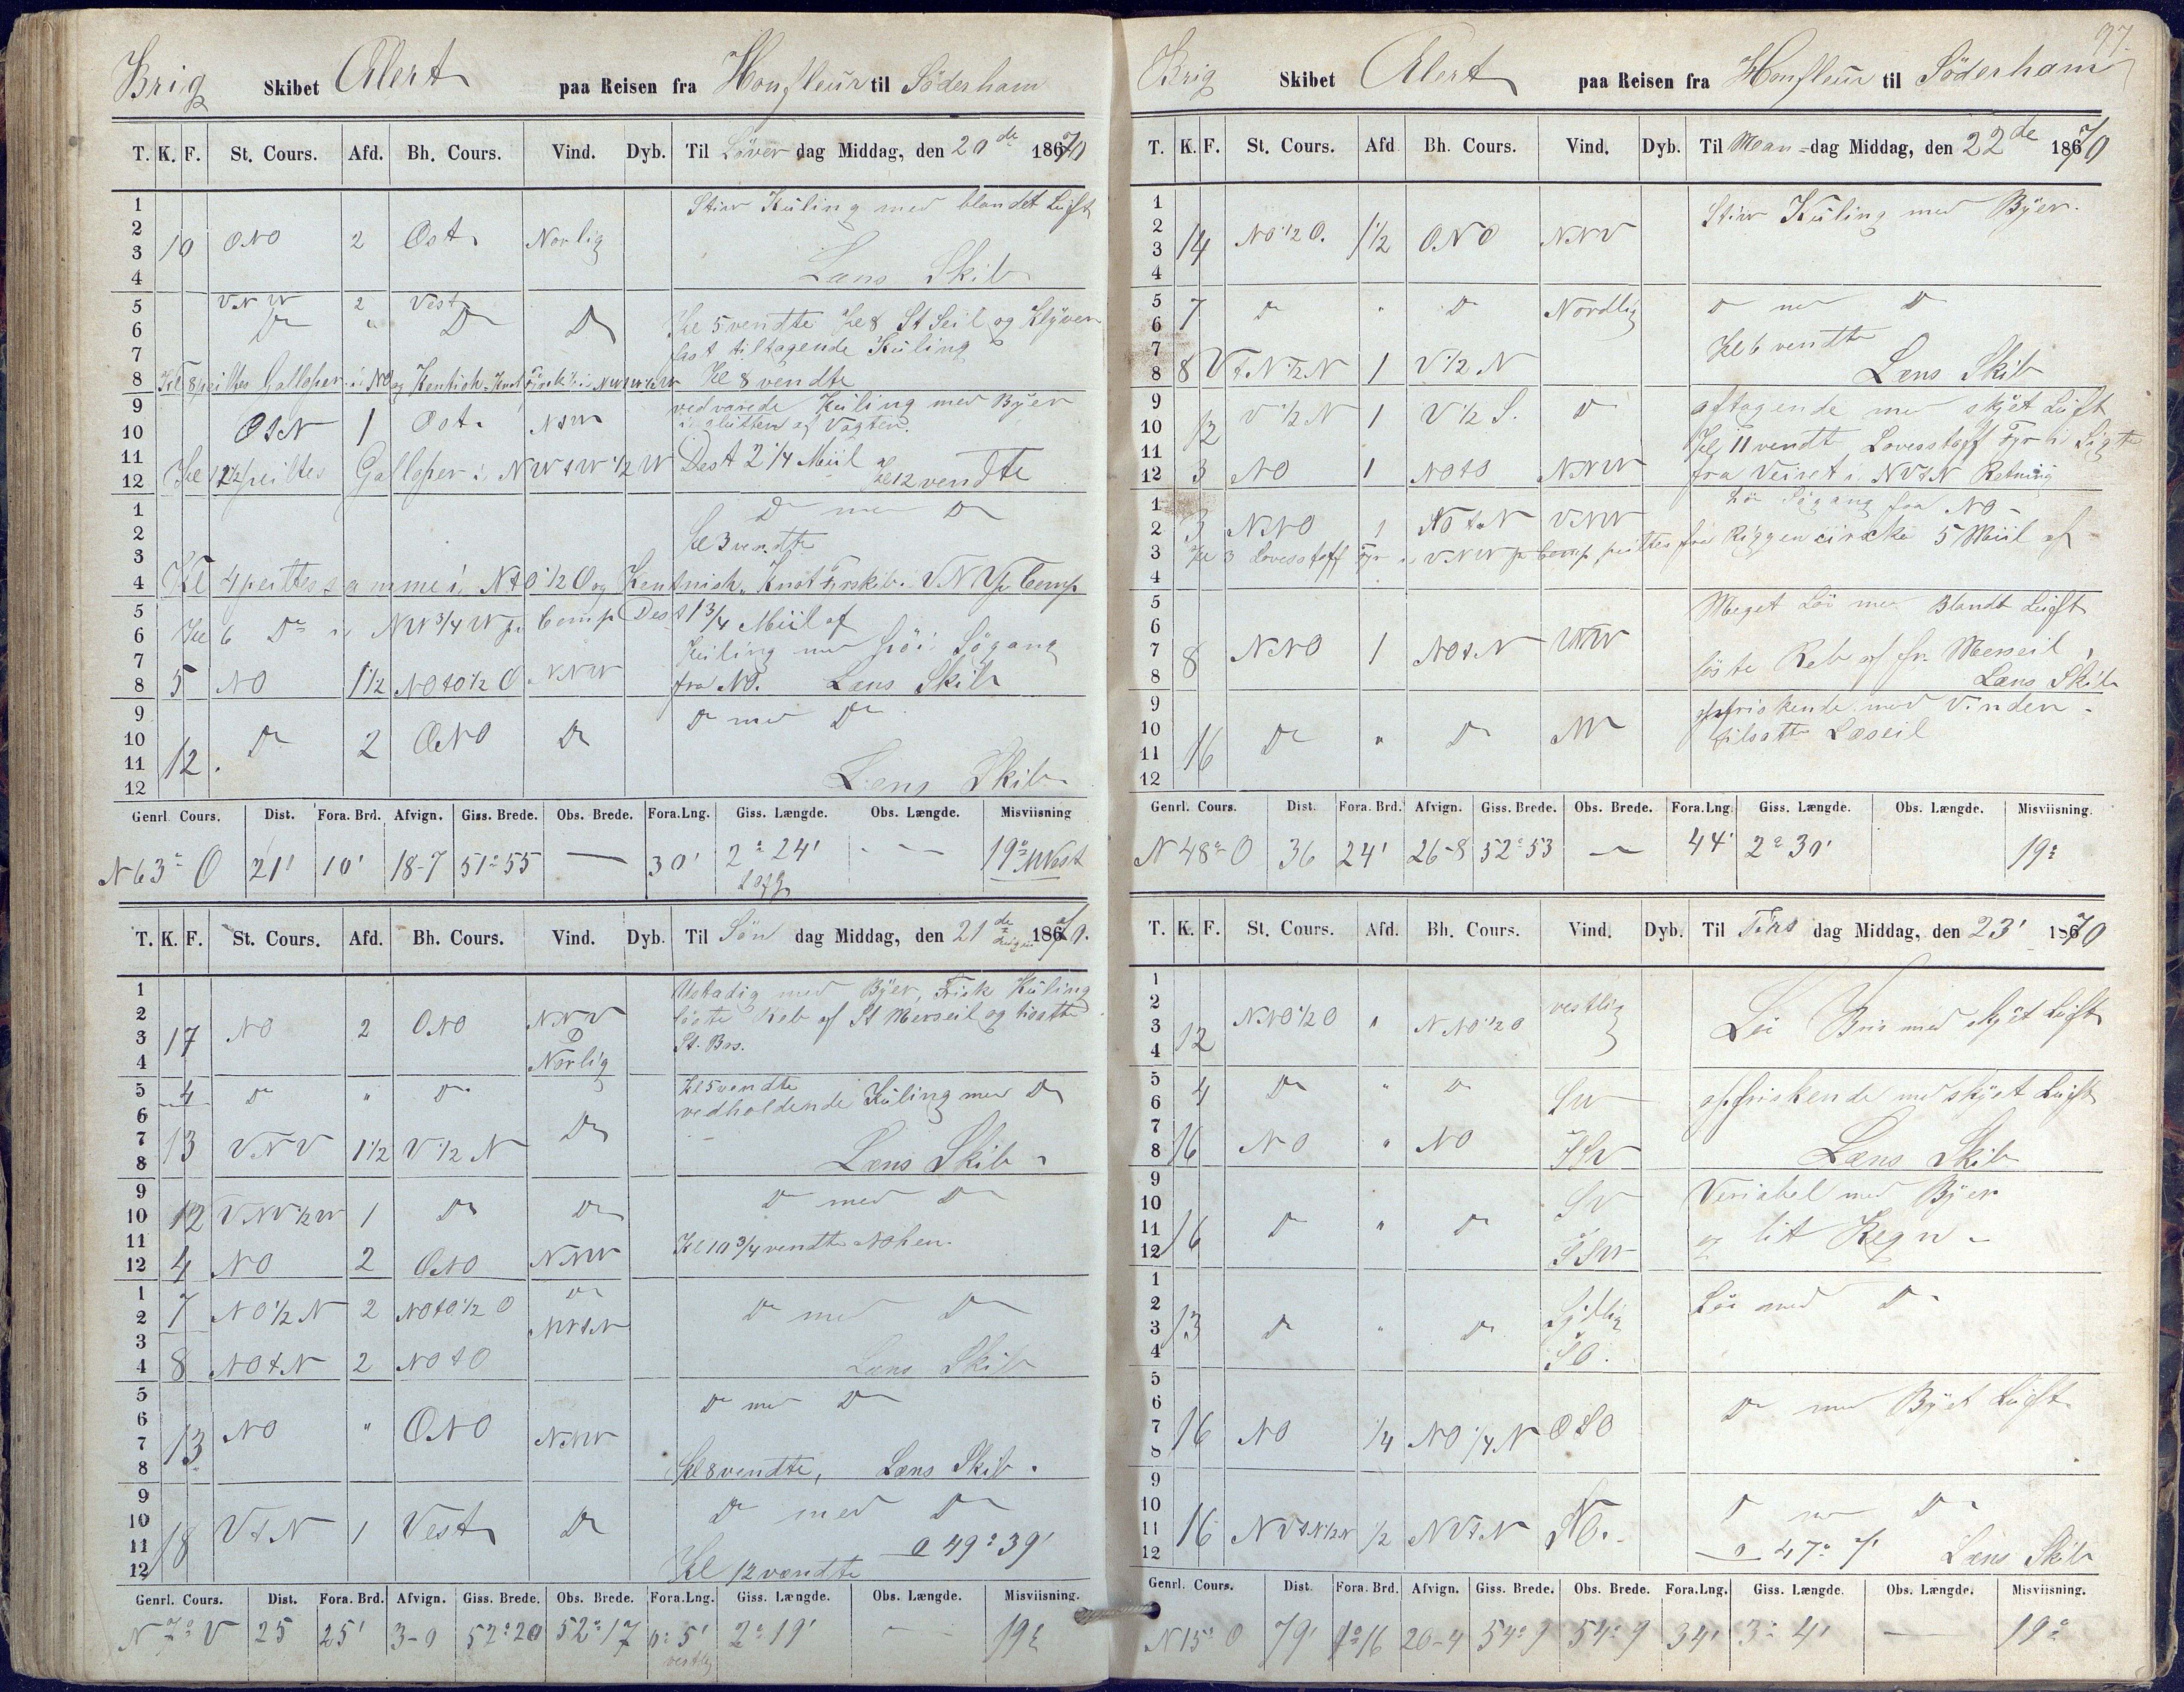 Brig Skibet Alert paa Reisen fra Honfleur til Söderham
T. K. F. St. Cours. Afd. Bh. Cours. Vind. Dyb. Til Löver dag Middag, den 20de 1870
1
2
3
4
10 ONO 2 Ost Norlig
Stiv Kuling med blandet Luft
Læns Skib
5
6
7
8
VNW 2 Vest
Do " Do Do
Kl 5 vendte Kl 8 St Seil og Klyver
fast tiltagende Kuling
Kl 8 peiltes Galloper i NO og Kentish Knot Kl 8 vendte
9
10
11
12
OtN 1 Ost. NtW
vedvarede Kuling med Byer
i slutten af Vagten.
Kl 12 peiltes Galloper i NWtW 1/2 W Dest 2 1/4 Miil
Kl 12 vendte
1
2
3
4
Do med Do
Kl 3 vendte
Kl 4 peiltes samme i NtO 1/2 O og Kentish Knot Fyrskib i VNV pr Comp
5
6
7
8
Kl 6 Do i NW 3/4 W pr Comp Dest 1 3/4 Miil af
Kuling med höi Sögang
5 NO 1 1/2 NOtO 1/2 O NNW fra NO. Læns Skib
9
10
11
12
12. Do 2 ONO Do
Do med Do
Læns Skib
Genrl. Cours. Dist. Fora. Brd. Afvign. Giss. Brede. Obs. Brede. Fora.Lng. Giss. Længde. Obs. Længde. Misviisning
N 63° O 21' 10' 18-7 51°55 — 30' 2° 24' — 19° Vest
T. K. F. St. Cours. Afd. Bh. Cours. Vind. Dyb. Til Sön dag Middag, den 21de 1870.
1
2
3
4
17 NO 2 ONO NNV
Norlig
Ustadig med Byer, Frisk Kuling
löste Reb af St Merseil og tisatte
St. Br.
5
6
7
8
4 Do " Do
Kl 5 vendte
vedholdende Kuling med Do
13 VNV 1 1/2 V 1/2 N Do
Læns Skib
9
10
11
12
12 VNV 1/2 W 1 Do Do
Do med Do
Kl 10 3/4 vendte NOhen.
4 NO 2 ONO NNW
1
2
3
4
7 NO 1/2 N 2 NOtO 1/2 O Do
NVtN
Do med Do
8 NOtN 2 NOtO
Læns Skib
5
6
7
8
13 NO " ONO NNW
Do med Do
Kl 8 vendte, Læns Skib.
9
10
11
12
18 VtN 1 Vest Do
Do med Do
49° 39'
Kl 12 vendte
Genrl. Cours. Dist. Fora. Brd. Afvign. Giss. Brede. Obs. Brede. Fora.Lng. Giss. Længde. Obs. Længde. Misviisning.
N 7° V 25 25' 3-0 52°20 52°17 0°5' 2° 19' — 19°
vestlig
97.
Brig Skibet Alert paa Reisen fra Honfleur til Söderham
T. K. F. St. Cours. Afd Bh. Cours. Vind. Dyb. Til Man-dag Middag, den 22de 1870
1
2
3
4
14 NO 1/2 O. 1 1/2 ONO NNV
Stiv Kuling med Byer.
5
6
7
8
7 Do " Do Nordlig Do med Do
Kl 6 vendte
8 VtN 1/2 N 1 V 1/2 N Læns Skib
9
10
11
12
12 V 1/2 N 1 V 1/2 S. Do
aftagende med skyet Luft
Kl 11 vendt Lovesstoff Fyr i Sigte
3 NO 1 NOtO NNW fra Veiret i NVtN Retning
1
2
3
4
Löi Sögang fra NO-
3 NNO 1 NOtN VNW
Kl 3 Lovesstoff Fyr i VNW pr Comp, peiltes fra Riggen cirka 5 Miil af
5
6
7
8
8 NNO 1 NOtN VNW
Meget Löi med Blandt Luft
löste Reb af for Merseil,
Læns Skib
9
10
11
12
16 Do " Do NV
opfriskende med Vinden.
tilsatte Læseil
Genrl. Cours. Dist. Fora. Brd. Afvign. Giss. Brede. Obs. Brede. Fora.Lng. Giss. Længde. Obs. Længde. Misviisning.
N 48° O 36 24' 26-8 52°53 — 44' 2° 30' 19°
T. K. F. St. Cours. Afd. Bh. Cours. Vind. Dyb. Til Tirs dag Middag, den 23' 1870
1
2
3
4
12 NNO 1/2 O " NNO 1/2 O vestlig
Löi Bris med skyet Luft
5
6
7
8
4 Do " Do SW
opfriskende med skyet Luft
16 NO " NO SSV
Læns Skib
9
10
11
12
16 Do " Do SV
SSW
Veriabel med Byer
og lit Regn
1
2
3
4
13 Do " Do Sydlig
SO.
Löi med Do
5
6
7
8
16 NO 1/4 NO 1/4 N OSO
Do med Byet Luft
9
10
11
12
16 NVtN 1/2 N 1/2 NVtN NO.
Do med Do
47° 7' Læns Skib
Genrl. Cours. Dist. Fora. Brd. Afvign. Giss. Brede. Obs. Brede. Fora.Lng. Giss. Længde. Obs. Længde. Misviisning.
N 15° O 79' 1°16 20-4 54°9 54°9 34' 3° 4' — 19°